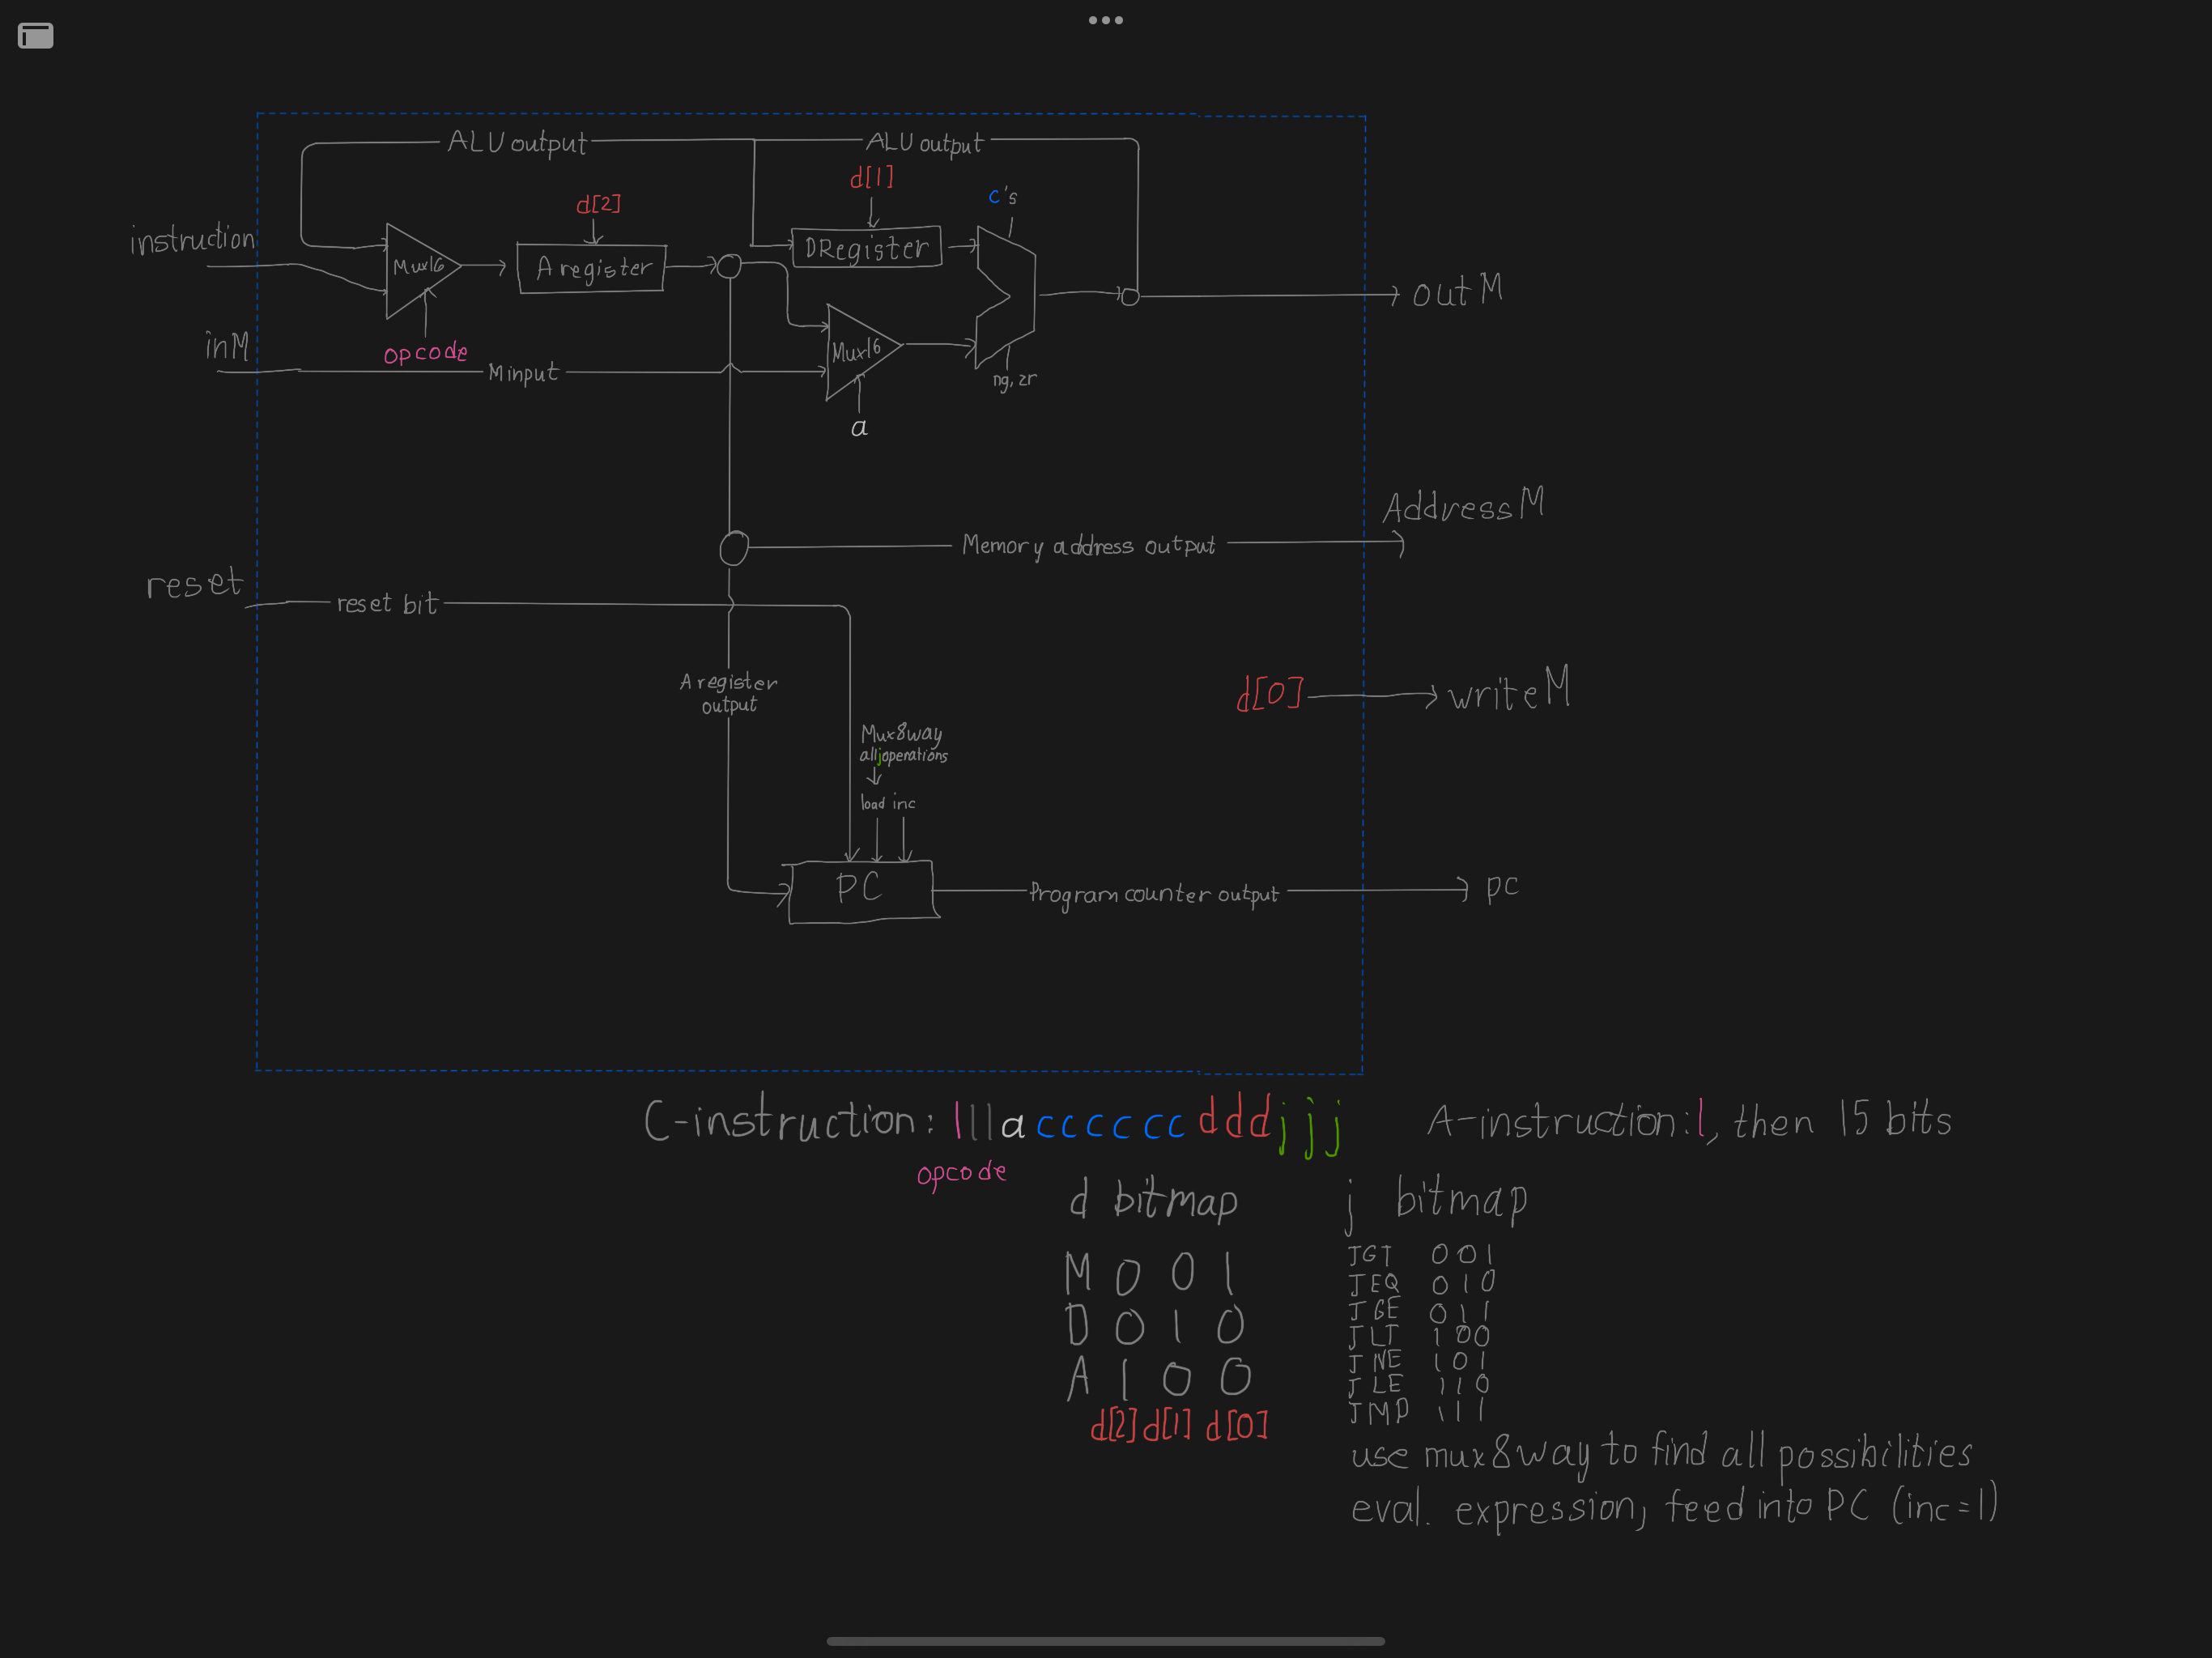 ALU output
ALU output
d[1]
d[2]
c's
instruction
Mux16
A register
DRegister
outM
inM
opcode
M input
Mux16
ng, zr
a
AddressM
Memory address output
reset
reset bit
A register
output
d[0]
writeM
Mux8way
all j operations
load inc
PC
Program counter output
pc
C-instruction: 111a cccccc ddd jjj
A-instruction: 1, then 15 bits
opcode
d bitmap
M 0 0 1
D 0 1 0
A 1 0 0
d[2] d[1] d[0]
j bitmap
JGT 001
JEQ 010
JGE 011
JLT 100
JNE 101
JLE 110
JMP 111
use mux8way to find all possibilities
eval. expression, feed into PC (inc=1)